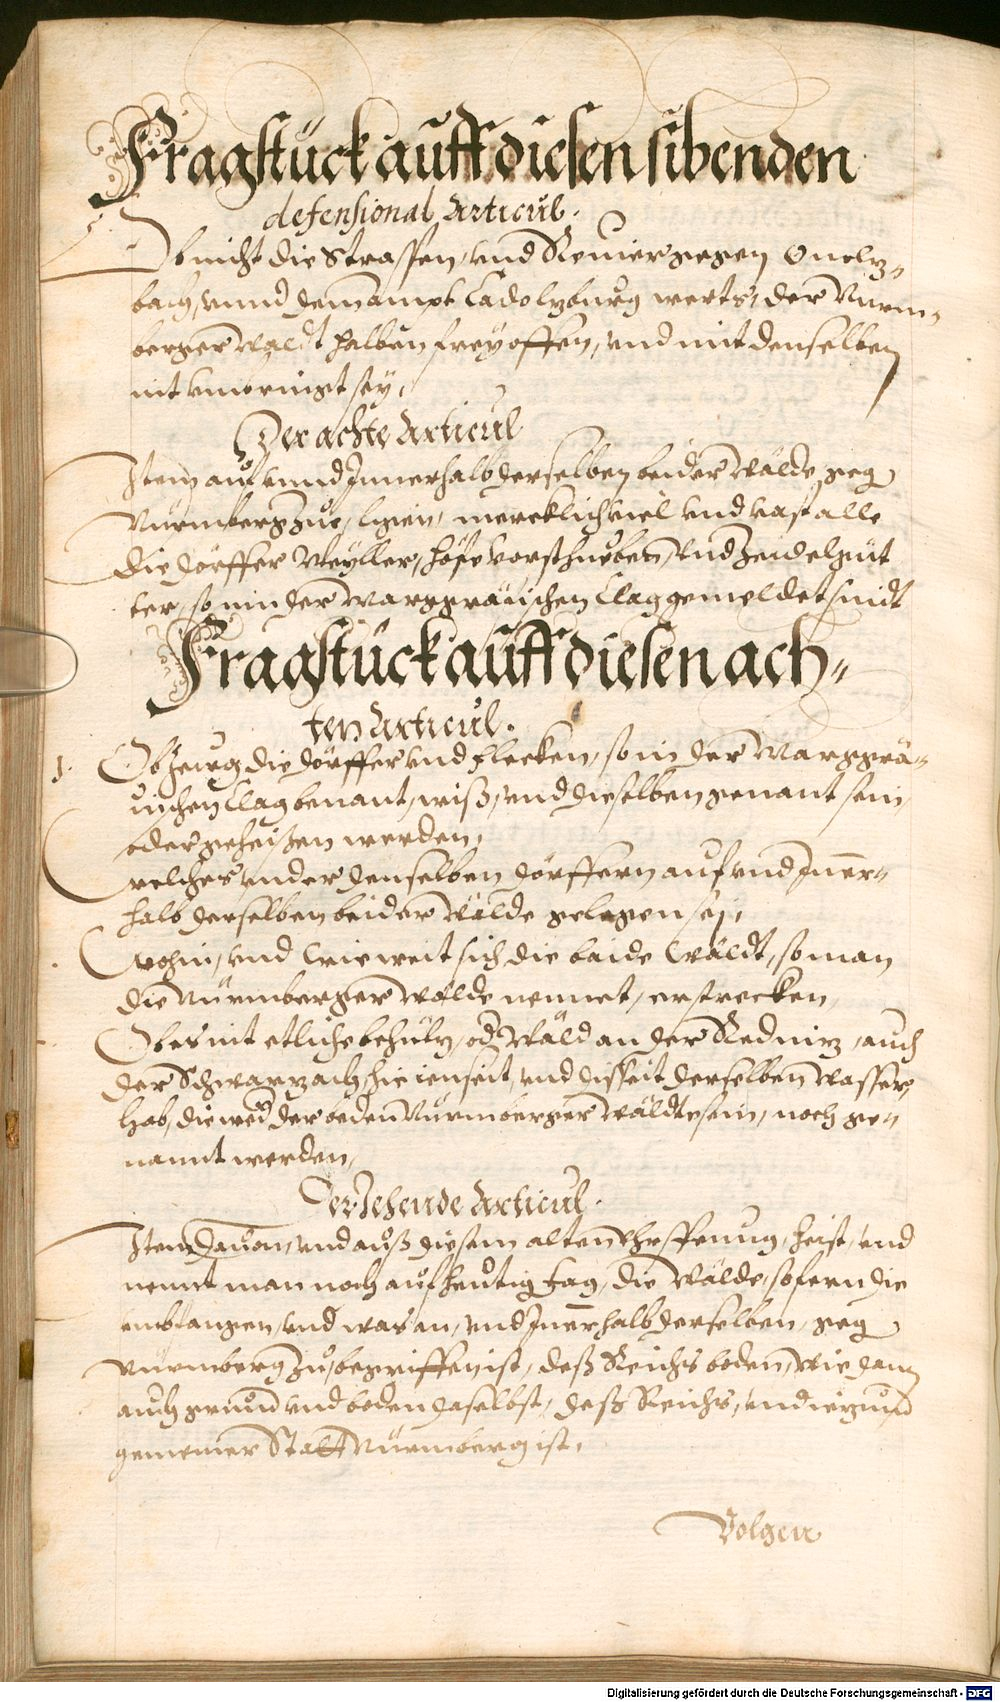 Fragstück auff diesen sibenden
defensional Articul.
Ob nicht die Strassen, und Revier gegen Onoltz=
bach, unnd dem ampt Cadoltzburg werts, der Nürm=
berger waldt halben frey offen, und mit denselben
nit umbringt sey,
Der achte Articul
Item auf unnd Innerhalb derselben beider wälde, geg
Nürmberg zue, ligen, mercklich viel und vast alle
die dörffer Weyller, höfe vorsthueben, und Zeidelgüt
ter, so inn der Marggrävischen Clag gemeldet sindt
Fragstück auff diesen ach=
ten Articul.
1. Ob Zeug die dörffer und flecken, so in der Marggrä=
vischen Clag benant, wiß, und dieselben genant sein,
oder geheißen werden,
welches under denselben dörffern auf und Inner=
halb derselben beider wälde gelegen sej,
wohin, und wie weit sich die beide wäldt, so man
die Nürmberger wälde nennet, erstrecken,
Ob es nit etliche behültz, od Wäld an der Rednitz, auch
der Schwarzach, hie ienseit, und disseit derselben wasser,
hab, die wed der beden Nürmberger wäldt sein, noch ge=
nannt werden,
Der Zehende Articul.
Item davon, und auß diesem alten, heist, und
nennt man noch auf heutig tag, die wälde, sofern die
umbfangen, und was an, und Innerhalb derselben, geg
Nürmberg zu, begriffen ist, deß Reichs boden, wie dann
auch grund und boden daselbst, deß Reichs, und ietzund
gemeiner Statt Nürmberg ist,
Volgen
Digitalisierung gefördert durch die Deutsche Forschungsgemeinschaft - DFG